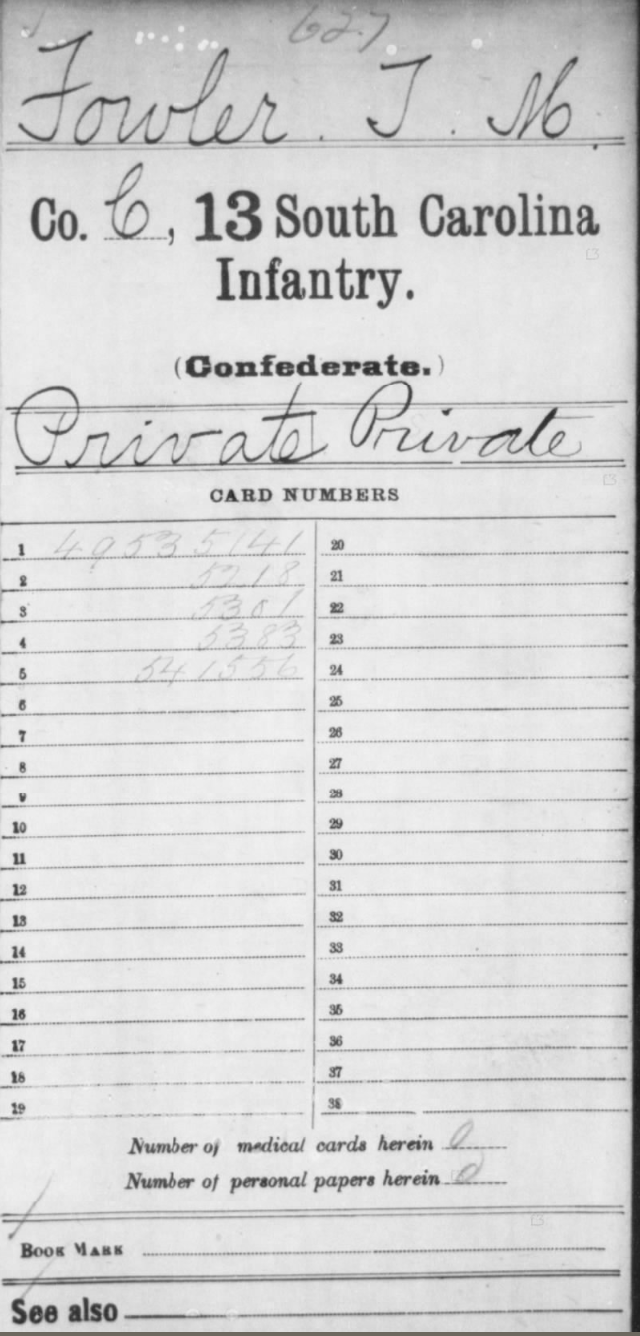 627
Fowler. T. M.
Co. C, 13 South Carolina
Infantry.
(Confederate.)
Private Private
CARD NUMBERS
1 49535141 20
2 5218 21
3 5301 22
4 5383 23
5 541556 24
6 25
7 26
8 27
9 28
10 29
11 30
12 31
13 32
14 33
15 34
16 35
17 36
18 37
19 38
Number of medical cards herein 0
Number of personal papers herein 0
BOOK MARK
See also